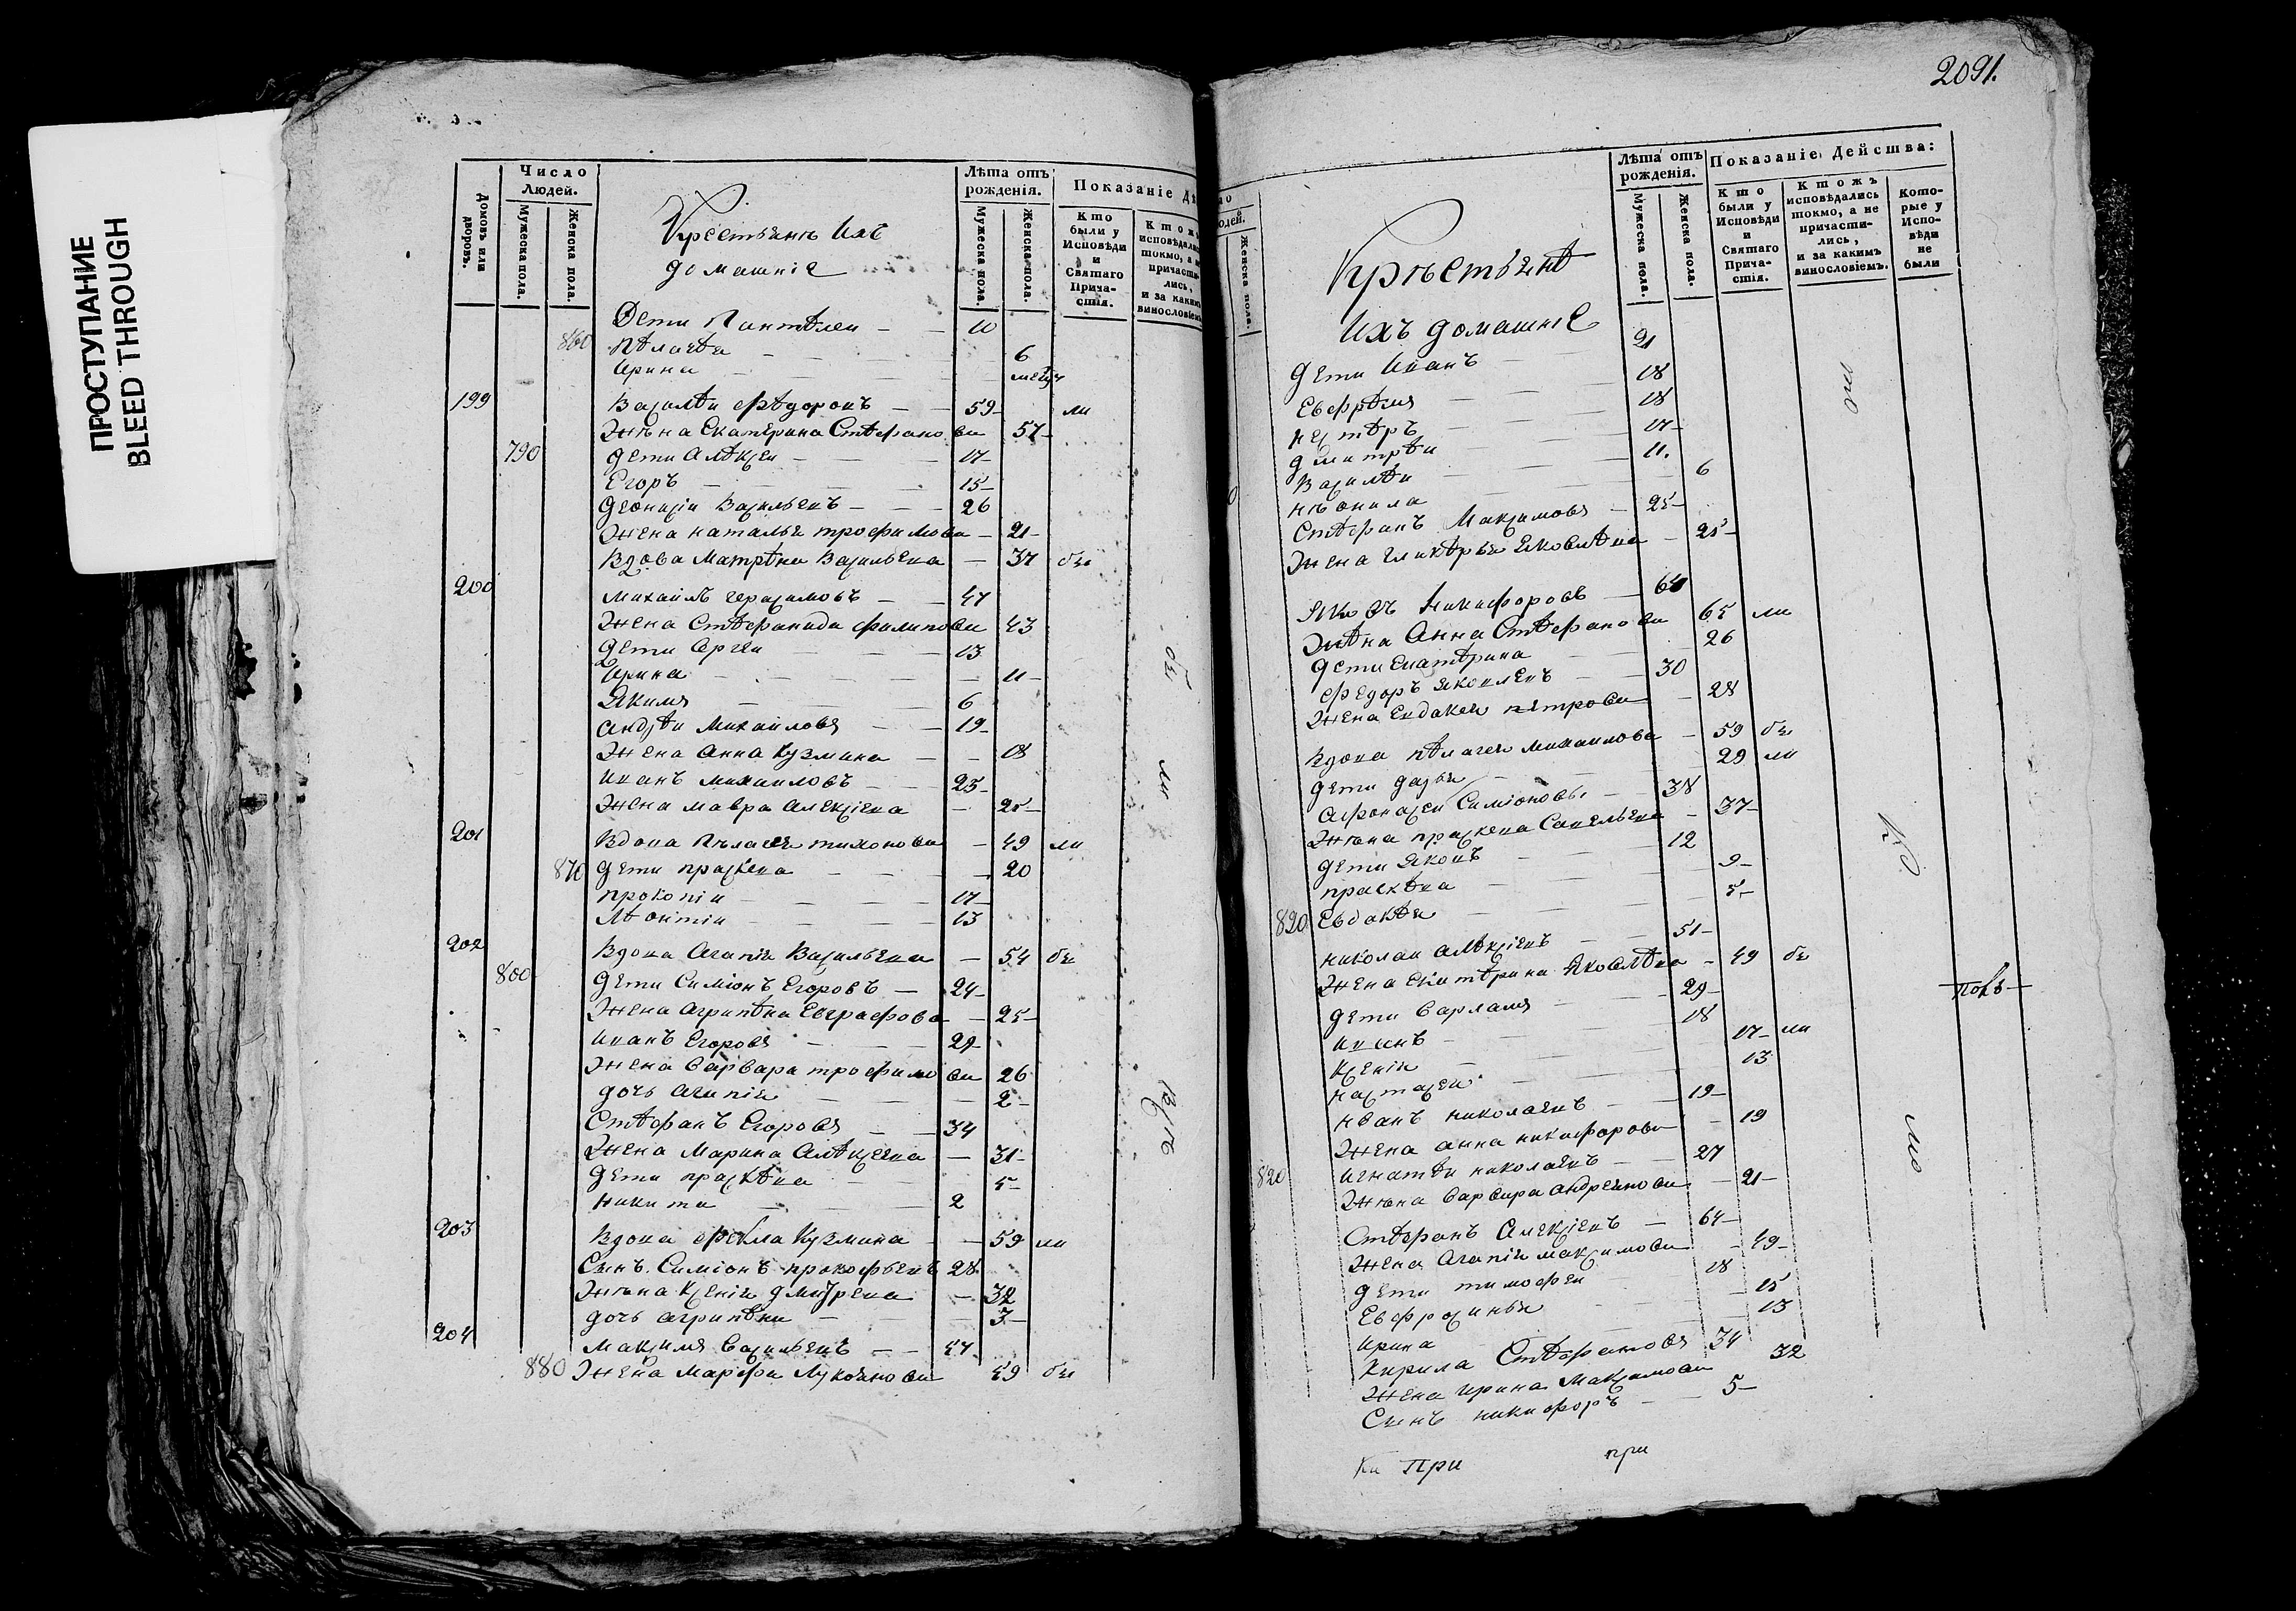 ПРОСТУПАНИЕ
BLEED THROUGH
Домовъ или дворовъ.
Число Людей.
Мужеска пола.
Женска пола.
Крестьянъ Ихъ
домашніе
Лѣта отъ рожденія.
Мужеска пола.
Женска пола.
Показаніе Дѣ
Кто были у Исповѣди и Святаго Причастія.
860 Дети Пантѣлеи — 10
Пѣлагѣя — 6
Ирина —
199 Василѣи Фѣдоровъ — 59 ли
Жена Екатерина Стѣфанова 57
790 Дети Алѣксеи — 17
Егоръ — 15
Деонисіи Васильевъ — 26
Жена наталья трофимова — 21
Вдова Матрѣна Васильева — 37 бы
200 Михаилъ герасимовъ — 47
Жена Стѣфанида филипова 43
Дети Сргеи — 13
Ирина — 11
Якимъ — 6
Андрѣи Михаиловъ — 19
Жена Анна Кузмина — 18
Иванъ михаиловъ — 25
Жена мавра алексіева — 25
201 Вдова Пелагея тихонова — 49 ли
870 Дети праскева — 20
прокопіи — 17
Лѣонтіи — 13
202 Вдова Агапія Васильева — 54 бы
800 Дети Симіонъ Егоровъ — 24
Жена Агрипѣна Евграфова — 25
Иванъ Егоровъ — 29
Жена Варвара трофимова 26
дочь Агапія — 2
Стѣфанъ Егоровъ — 34
Жена Марина Алѣксеева — 31
Дети праскѣва — 5
Никита — 2
203 Вдова фекла Кузмина — 59 ли
Сынъ Симіонъ прокофьевъ 28
Жена Ксенія Дмитрева — 32
дочь агрипѣна — 3
204 Максимъ Васильевъ — 47
880 Жена Марфа Лукоянова 49 бы
2091.
Женска пола.
Крѣстьянѣ
Ихъ домашніе
Лѣта отъ рожденія.
Мужеска пола.
Женска пола.
Показаніе Действа:
Кто были у Исповѣди и Святаго Причастія.
Ктожъ исповѣдались токмо, а не причастились, и за какимъ винословіемъ.
Которые у Исповѣди не были
Дети Иванъ — 21
18
18
Дмитрѣи — 17
Василѣи — 11.
нѣонила — 6
Стѣфанъ Максимовъ — 25
Жена Гликѣрья Яковлѣва — 25
Яковъ Никифоровъ —
Жѣна Анна Стѣфанова 65 ли
Дети Екатѣрина — 26
Федоръ Яковлевъ — 30
Жена Евдокея пѣтрова — 28
Вдова пѣлагея михаилова — 59 бы
Дети Дарья — 29 ли
Афонасеи Симіоновъ — 38
Жена праскева Савельева — 37
Дети Яковъ — 12
прасквѣа — 9
820 Евдокѣя — 5
николаи алѣксіевъ — 51
Жена Екатѣрина Яковлѣва — 49 бы
Дети Варламъ — 29
Иванъ — 18
Ксенія — 17 ли
настасея — 13
Иванъ николаевъ — 19
Жена анна никифорова — 19
820 Игнатѣи николаевъ — 27
Жена Варвара андреянова — 21
Стѣфанъ Алексіевъ — 64
Жена Агапія максимова — 49
Дети тимофеи 18
Евфросинья — 15
Ирина — 13
Кирила Стѣфановъ 34
Жена Ирина Максимова 32
Сынъ никифоръ — 5
При при